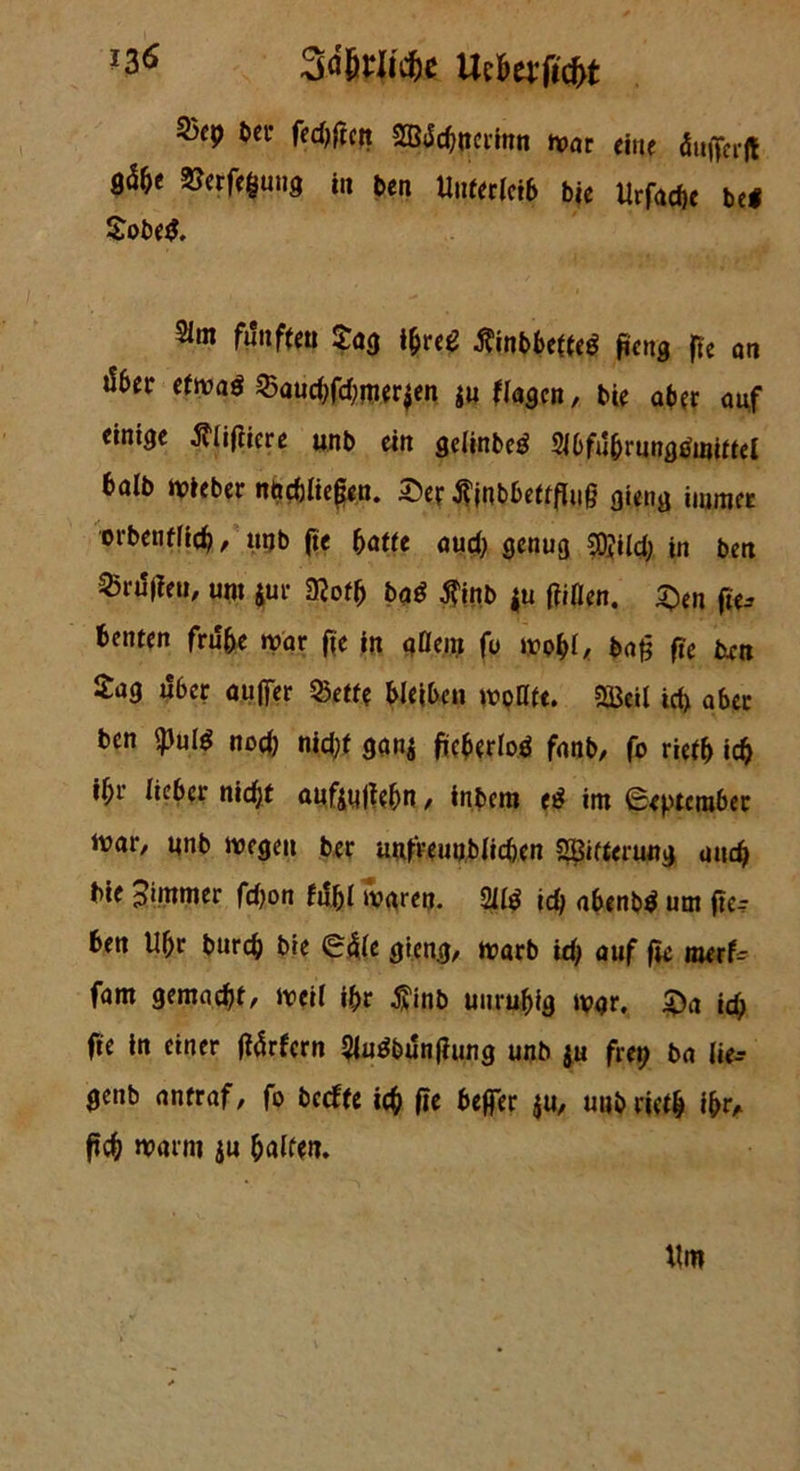 136 Jährliche Ueberſicht
Bey der ſechſten Wöchnerinn war eine äuſſerſt
gähe Verſetzung in den Unterleib die Urſache des
Todes.
Am fünften Tag ihres Kindbettes fieng ſie an
über etwas Bauchſchmerzen zu klagen, die aber auf
einige Kliſtiere und ein gelindes Abführungsmittel
bald wieder nachließen. Der Kindbettfluß gieng immer
ordentlich, und ſie hatte auch genug Milch in den
Brüſten, um zur Noth das Kind zu ſtillen. Den ſie-
benten frühe war ſie in allem ſo wohl, daß ſie den
Tag über auſſer Bette bleiben wollte. Weil ich aber
den Puls noch nicht ganz fieberlos fand, ſo rieth ich
ihr lieber nicht aufzuſtehn, indem es im September
war, und wegen der unfreundlichen Witterung auch
die Zimmer ſchon kühl waren. Als ich abends um ſie-
ben Uhr durch die Säle gieng, ward ich auf ſie merk-
ſam gemacht, weil ihr Kind unruhig war. Da ich
ſie in einer ſtärkern Ausdünſtung und zu frey da lie-
gend antraf, ſo deckte ich ſie beſſer zu, und rieth ihr,
ſich warm zu halten.
Um